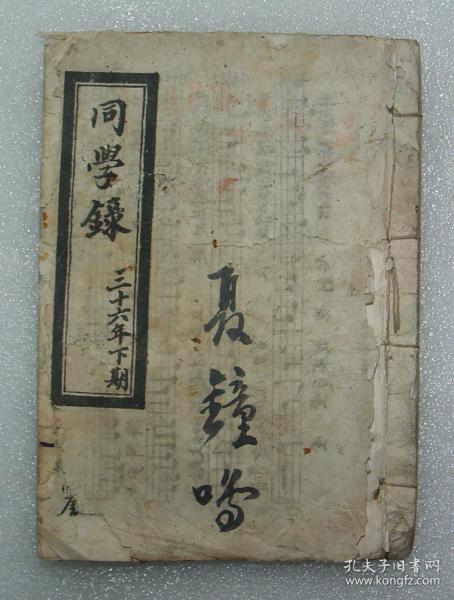 同學錄
三十六年下期
夏鐘鳴
孔夫子旧书网
www.kongfz.com